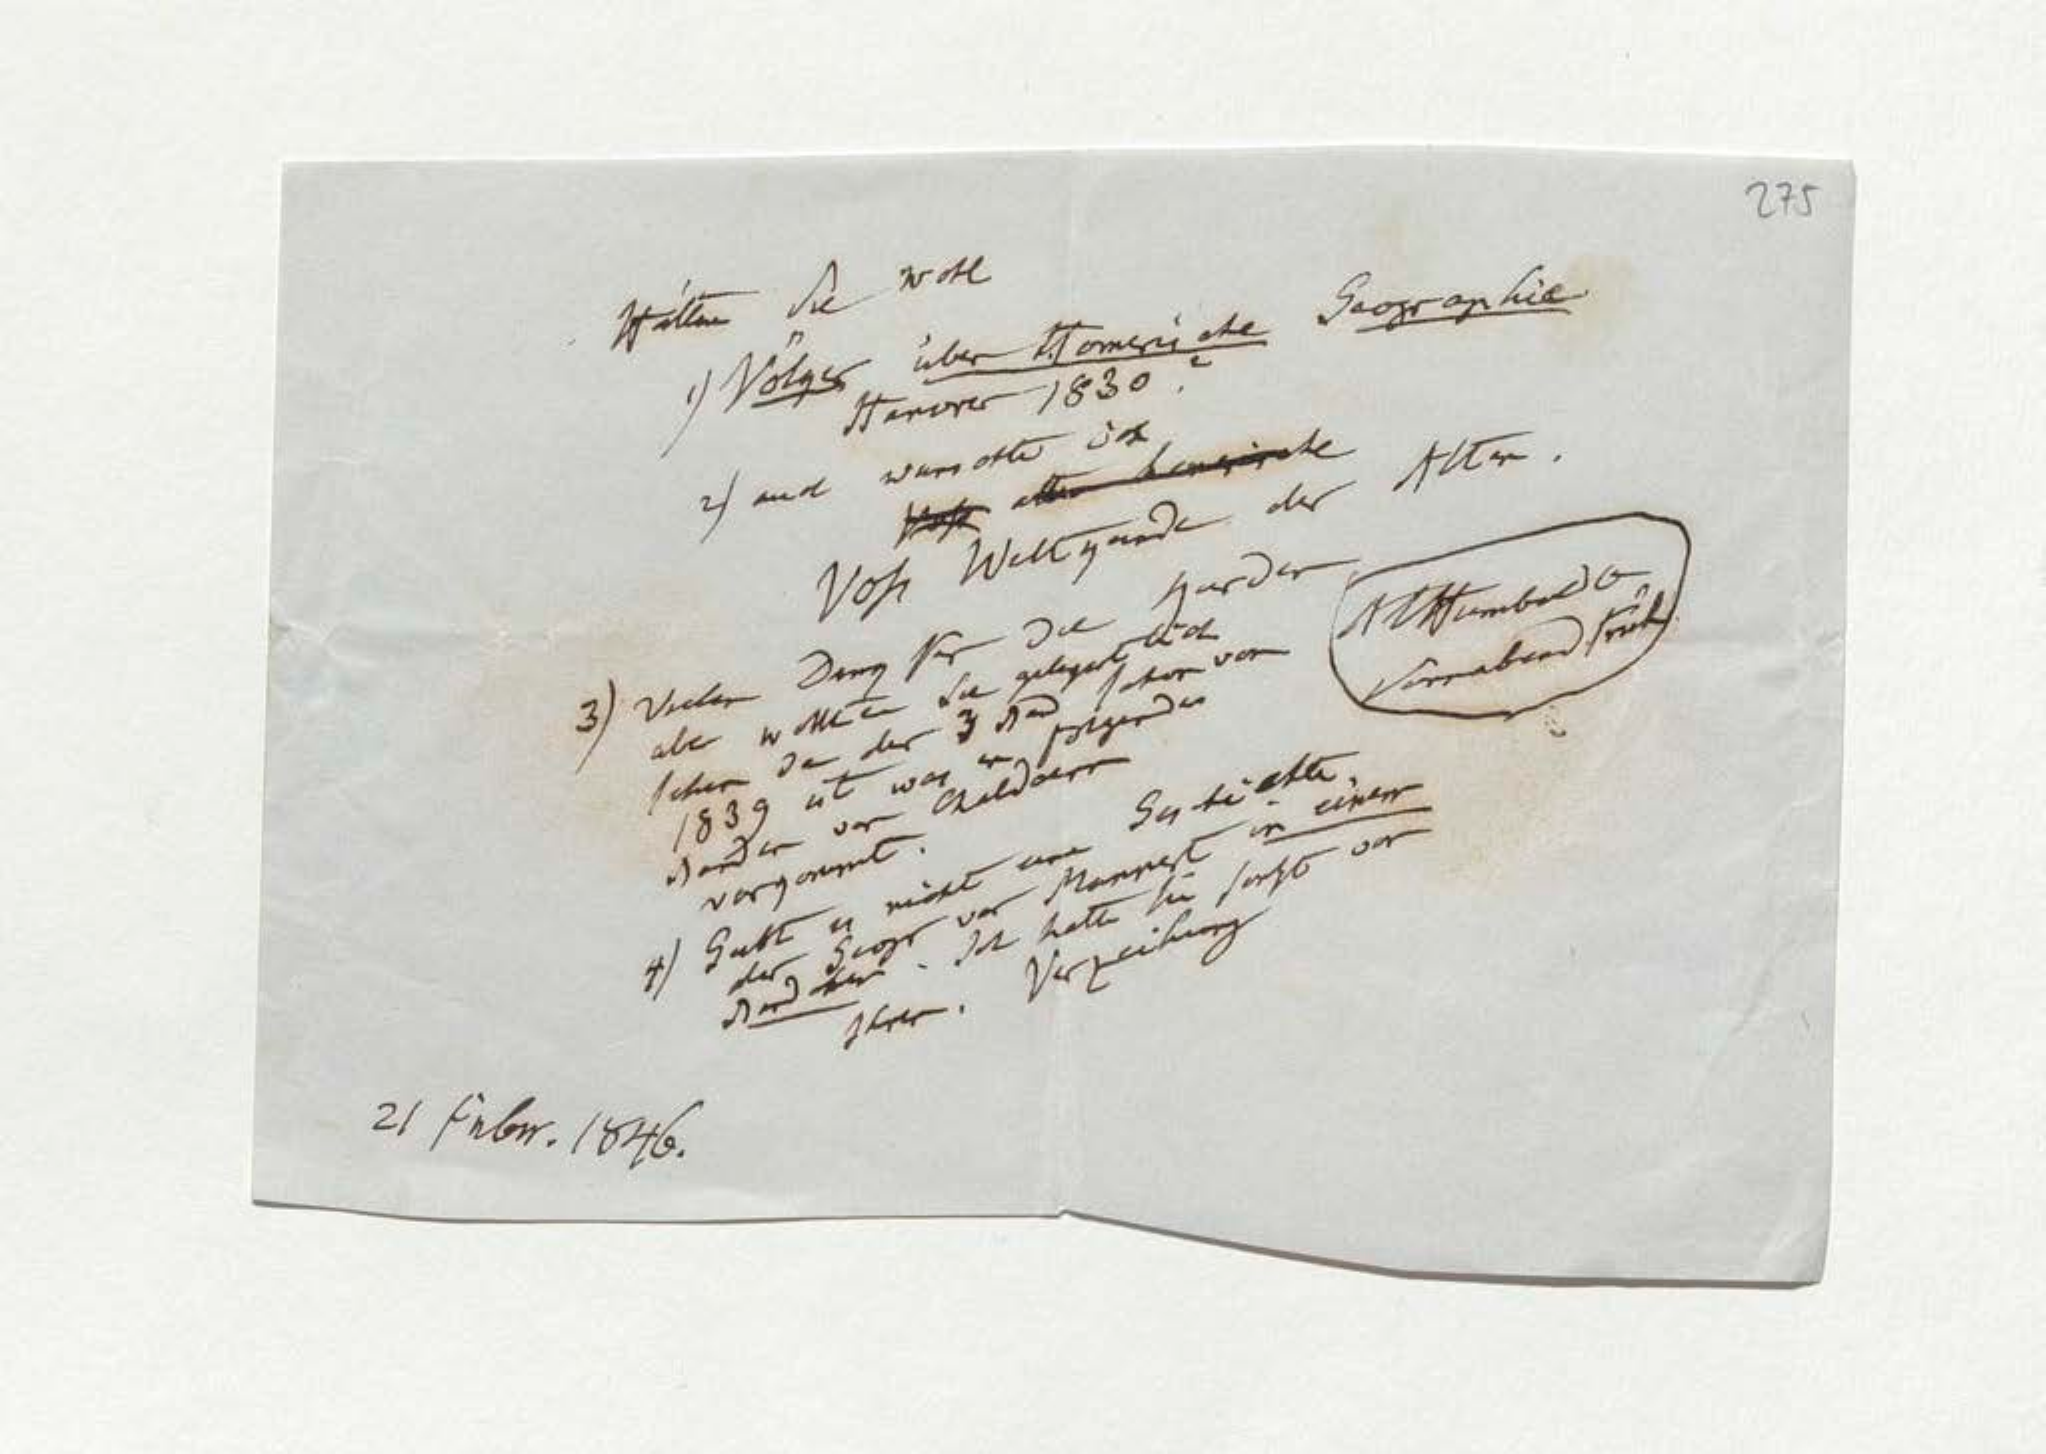 275
Hätten Sie wohl
1) Völger über Homerische Geographie
Hanover 1830.?
2) auch wünschte ich
Voß alte homerische
Voß Weltkunde der Alten.
3) Vielen Dank für die
aber wollten Sie gelegentlich
sehen da der 3 Band schon von
1839 ist was in folgenden
Bänden von Chaldäern
vorkommt.
4) Giebt es nicht eine Geschichte
der Geogr von Mannert in einem
Band. Ich hatte sie sonst von
Ihnen. Verzeihung
AlHumboldt
Sonnabend früh
21 Febr. 1846.